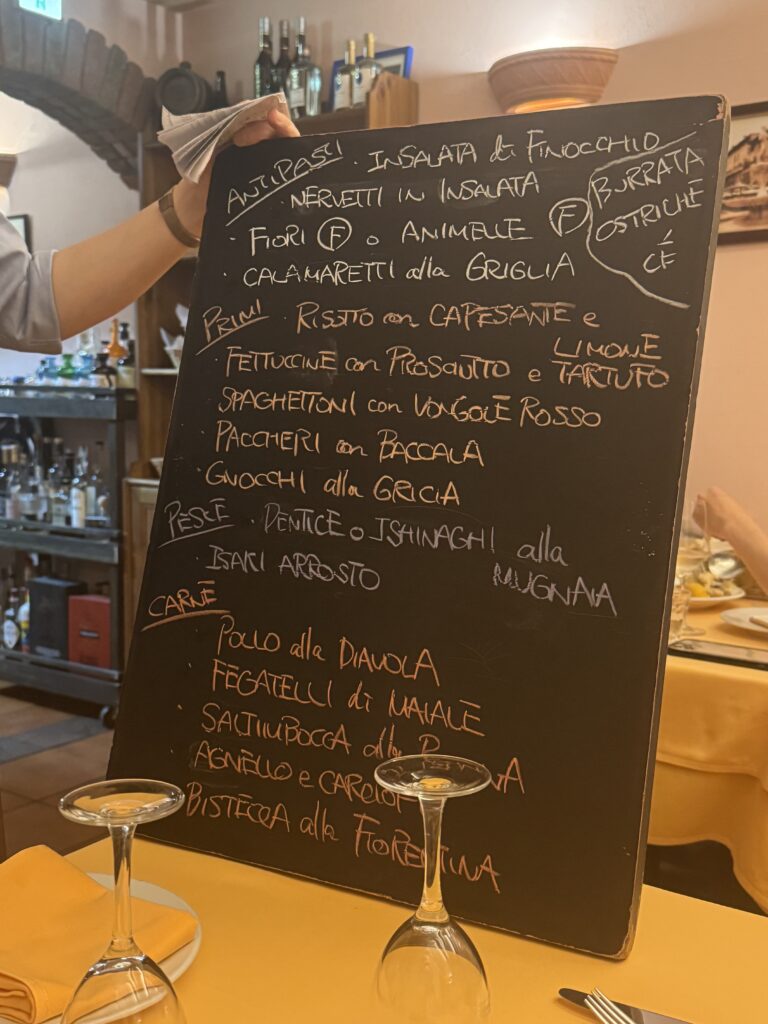 ANTIPASTI · INSALATA di FINOCCHIO
· NERVETTI IN INSALATA
· FIORI Ⓕ o ANIMELLE Ⓕ
· CALAMARETTI alla GRIGLIA
BURRATA
OSTRICHE
PRIMI · RISOTTO con CAPESANTE e LIMONE
· FETTUCCINE con PROSCIUTTO e TARTUFO
· SPAGHETTONI con VONGOLE ROSSO
· PACCHERI con BACCALÀ
· GNOCCHI alla GRICIA
PESCE · DENTICE o ISHINAGHI alla MUGNAIA
· ISAKI ARROSTO
CARNE
· POLLO alla DIAVOLA
· FEGATELLI di MAIALE
· SALTIMBOCCA alla
· AGNELLO e
· BISTECCA alla FIORENTINA